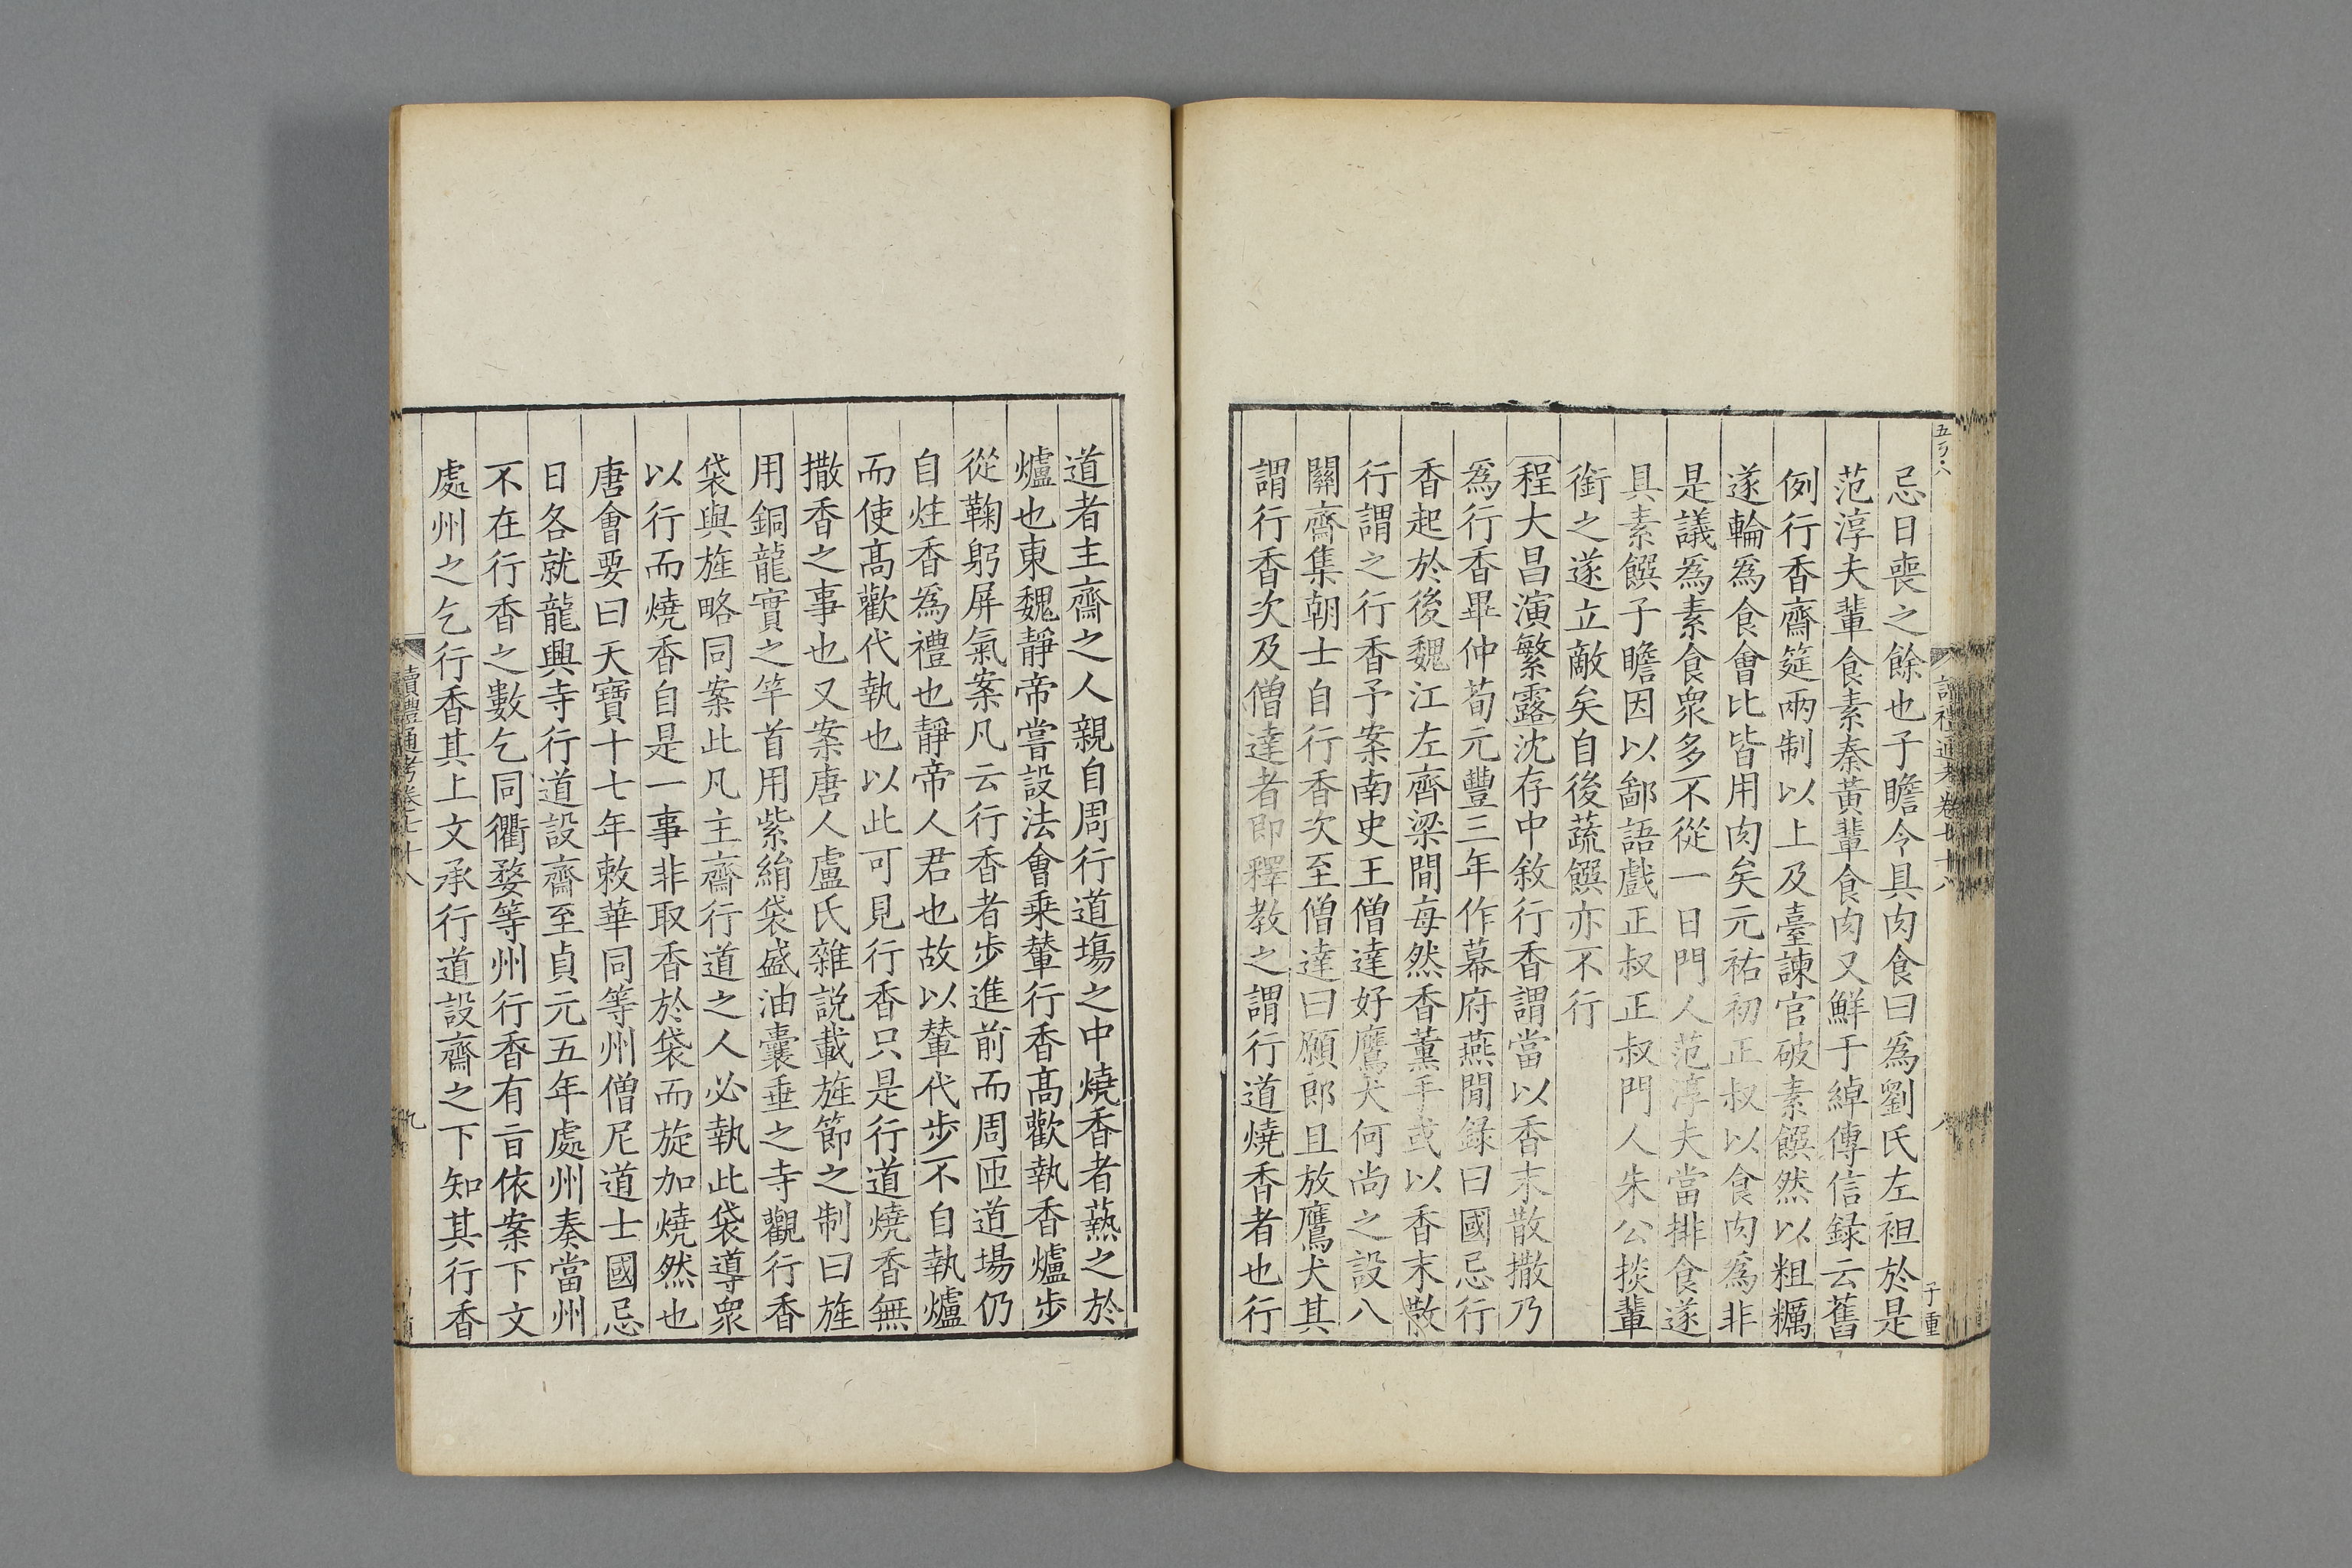 忌日喪之餘也子瞻今具肉食曰爲劉氏左袒於是
范淳夫輩食素秦黃輩食肉又鮮于綽傳信録云舊
例行香齋筵兩制以上及臺諫官破素饌然以粗糲
遂輪爲食會比皆用肉矣元祐初正叔以食肉爲非
是議爲素食衆多不從一日門人范淳夫當排食遂
具素饌子瞻因以鄙語戲正叔正叔門人朱公掞輩
銜之遂立敵矣自後蔬饌亦不行
程大昌演繁露沈存中敘行香謂當以香末散撒乃
爲行香畢仲荀元豐三年作幕府燕閒録曰國忌行
香起於後魏江左齊梁間每然香薰手或以香末散
行謂之行香予案南史王僧達好鷹犬何尚之設八
關齋集朝士自行香次至僧達曰願郎且放鷹犬其
謂行香次及僧達者即釋教之謂行道燒香者也行
道者主齋之人親自周行道塲之中燒香者爇之於
爐也東魏靜帝嘗設法會乗輦行香髙歡執香爐步
從鞠躬屏氣案凡云行香者步進前而周匝道場仍
自炷香爲禮也靜帝人君也故以輦代步不自執爐
而使髙歡代執也以此可見行香只是行道燒香無
撒香之事也又案唐人盧氏雜説載旌節之制曰旌
用銅龍實之竿首用紫絹袋盛油囊垂之寺觀行香
袋與旌略同案此凡主齋行道之人必執此袋導衆
以行而燒香自是一事非取香於袋而旋加燒然也
唐會要曰天寶十七年敕華同等州僧尼道士國忌
日各就龍興寺行道設齋至貞元五年處州奏當州
不在行香之數乞同衢婺等州行香有旨依案下文
處州之乞行香其上文承行道設齋之下知其行香
讀禮通考卷七十八
九
讀禮通考卷七十八
八
子重